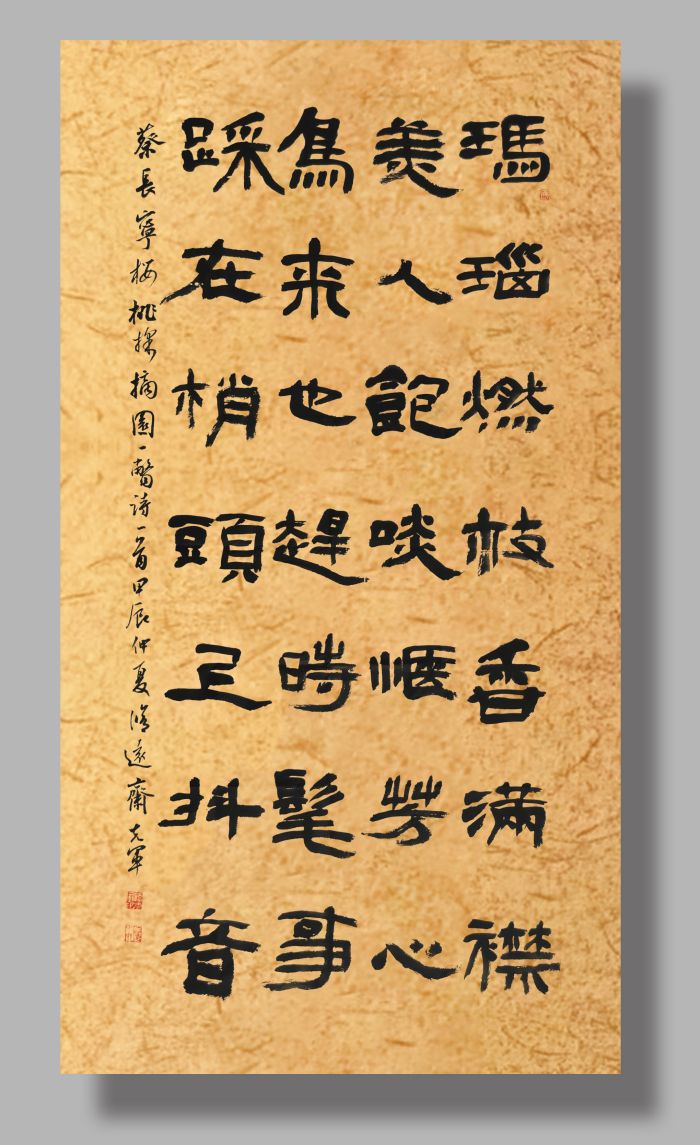 瑪瑙燃枝香滿襟
美人飽啖愜芳心
鳥来也趕時髦事
踩在梢頭抖音
蔡長寧桜桃採摘園一瞥詩一首甲辰仲夏修遠齋克軍